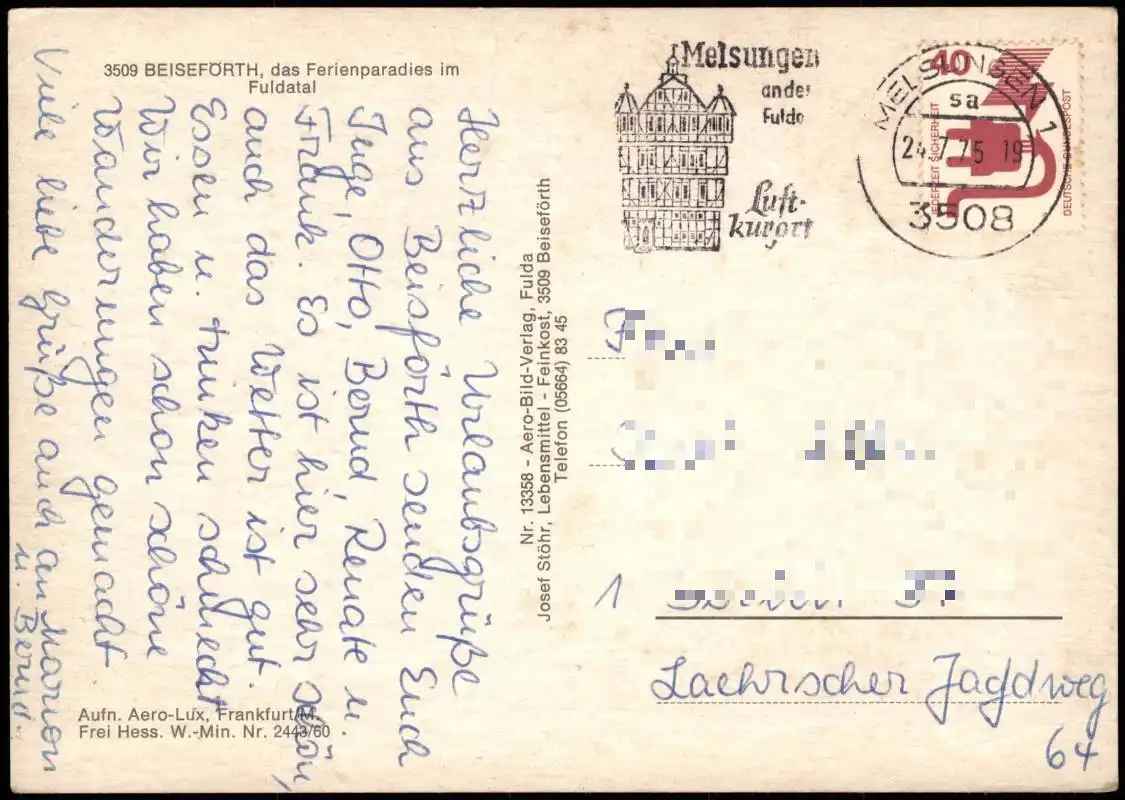 3509 BEISEFÖRTH, das Ferienparadies im
Fuldatal
Herzliche Urlaubsgrüße
aus Beisförth senden Euch
Inge, Otto, Bernd, Renate u.
Frank. Es ist hier sehr schön,
auch das Wetter ist gut.
Essen u. trinken schmeckt
Wir haben schon schöne
Wanderungen gemacht
Viele liebe Grüße auch an Marion
u. Bernd.
Aufn. Aero-Lux, Frankfurt/M.
Frei Hess. W.-Min. Nr. 2443/60
Nr. 13358 - Aero-Bild-Verlag, Fulda
Josef Stöhr, Lebensmittel - Feinkost, 3509 Beiseförth
Telefon (05664) 83 45
Melsungen
an der
Fulda
Luft-
kurort
MELSUNGEN 1
sa
24.7.75 19
3508
40
JEDERZEIT SICHERHEIT
DEUTSCHE BUNDESPOST
1
Laehrscher Jagdweg
64